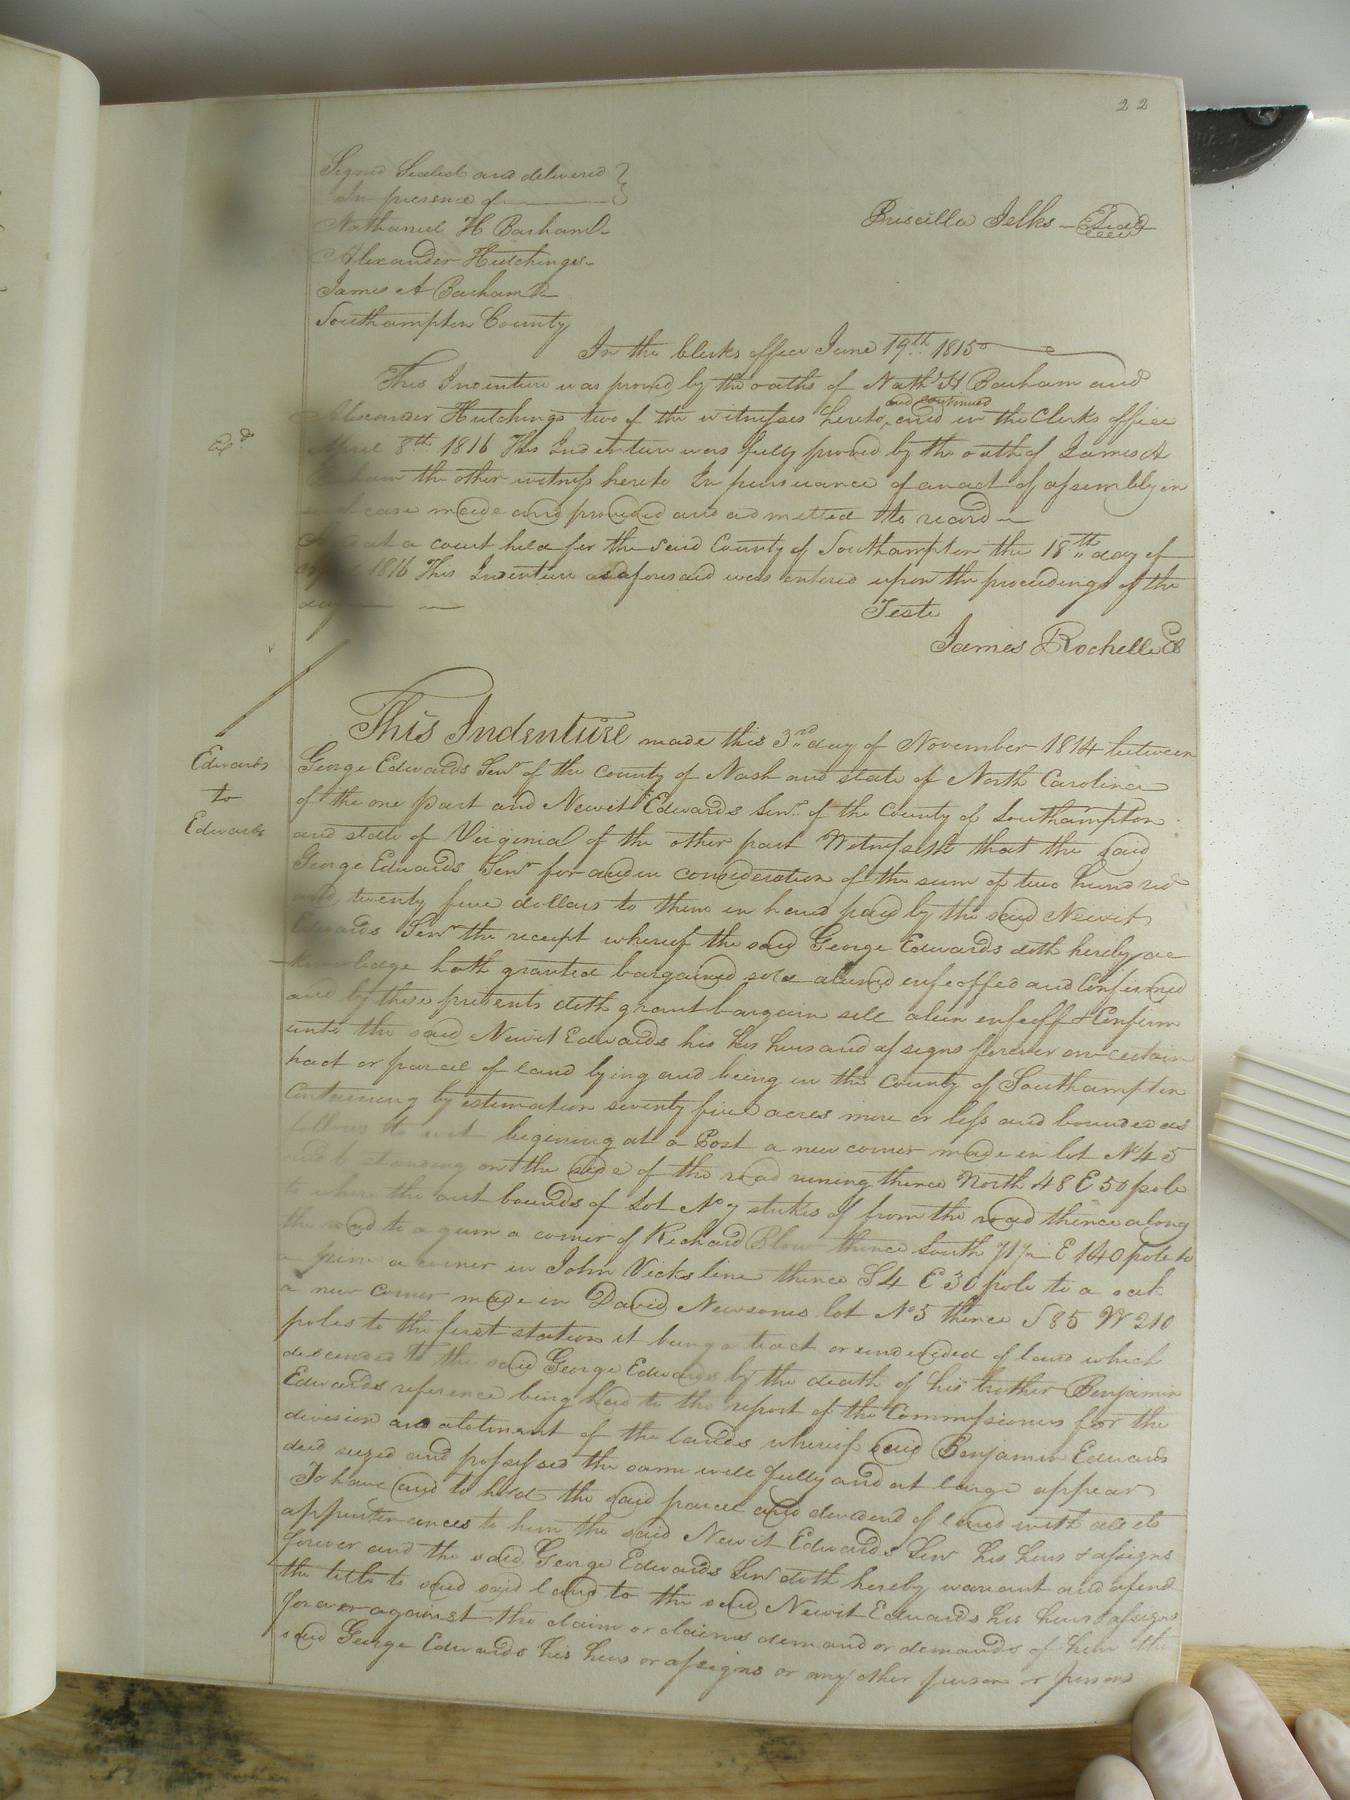 22
Signed Sealed and delivered
In presence of
Nathaniel H Barham
Priscilla Jelks Seal
Alexander Hutchings
James A Barham
Southampton County
In the Clerks office June 19th 1815
This Indenture was proved by the oaths of Nathl H Barham and
and continued
Alexander Hutchings two of the witnesses hereto, and in the Clerks office
Exd
April 8th 1816 This Indenture was fully proved by the oath of James A
Barham the other witness hereto In pursuance of an act of assembly in
such case made and provided and admitted to record
And at a court held for the said County of Southampton the 18th day of
1816 This Indenture as aforesaid was entered upon the proceedings of the
day
Teste
James Rochelle
This Indenture made this 3rd day of November 1814 between
Edwards
to
Edwards
George Edwards Senr of the county of Nash and state of North Carolina
of the one part and Newit Edwards Senr of the County of Southampton
and state of Virginia of the other part Witnesseth that the said
George Edwards Senr for and in consideration of the sum of two hundred
and twenty five dollars to them in hand paid by the said Newit
Edwards Senr the receipt whereof the said George Edwards doth hereby ac
knowledge hath granted bargained sold aliened enfeoffed and Confirmed
and by these presents doth grant bargain sell alien enfeoff & Confirm
unto the said Newit Edwards his his heirs and assigns forever one certain
tract or parcel of land lying and being in the County of Southampton
Containing by estimation seventy five acres more or less and bounded as
follows to wit begining at a Post a new corner made in lot No 4 5
standing on the side of the road runing thence North 48 E 50 pole
to where the out bounds of Lot No 7 strikes of from the road thence along
the road to a gum a corner of Richard Blow thence South 71½ E 140 pole to
a corner in John Vicks line thence S 4 E 30 pole to a oak
a new corner made in David Newsoms lot No 5 thence S 85 W 210
poles to the first station it being a tract or undevided of land which
descended to the said George Edwards by the death of his brother Benjamin
Edwards reference being had to the report of the Commissioners for the
division and alotment of the lands whereof said Benjamin Edwards
died seized and possessed the same will fully and at large appear
To have and to hold the said parcel and devidend of land with all its
appurtenances to him the said Newit Edwards Senr his heirs & assigns
forever and the said George Edwards Senr doth hereby warrant and defend
the title to said said land to the said Newit Edwards his heirs & assigns
forever against the claim or claims demand or demands of him the
said George Edwards his heirs or assigns or any other person or persons